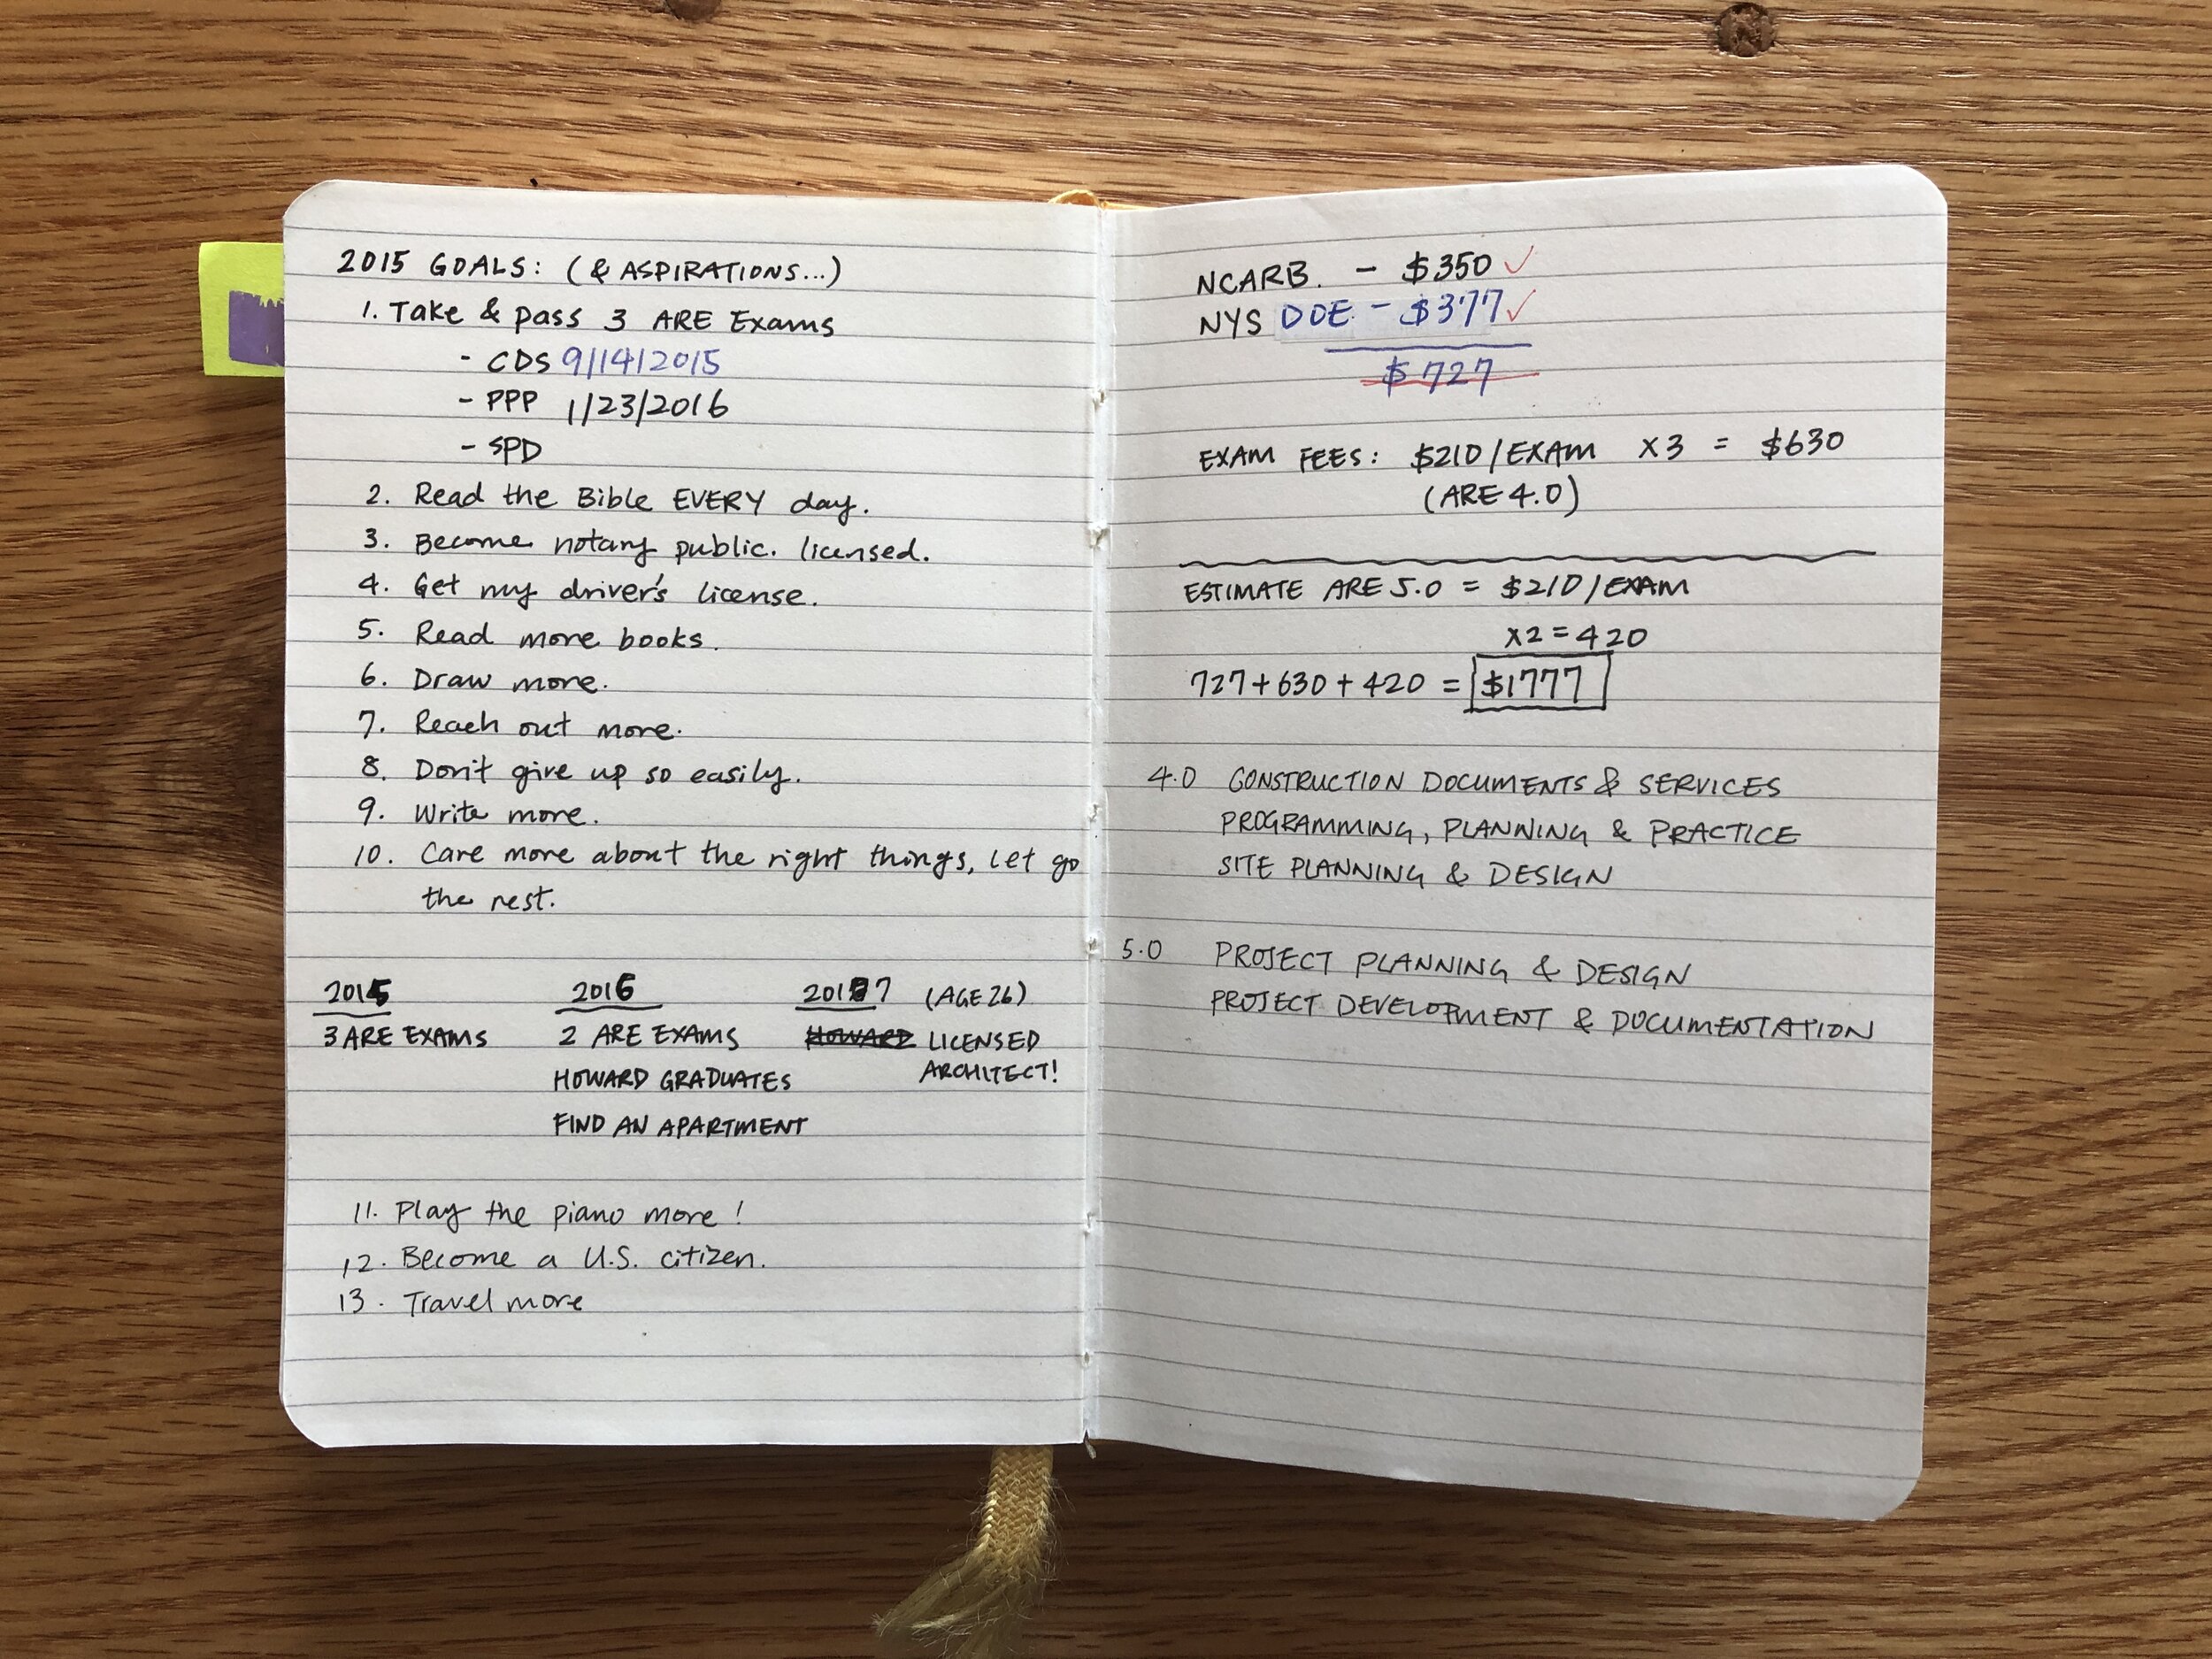 2015 GOALS: (& ASPIRATIONS...)
1. Take & pass 3 ARE Exams
- CDS 9/14/2015
- PPP 1/23/2016
- SPD
2. Read the Bible EVERY day.
3. Become notary public. licensed.
4. Get my driver's license.
5. Read more books.
6. Draw more.
7. Reach out more.
8. Don't give up so easily.
9. Write more.
10. Care more about the right things, let go
the rest.
2015 2016 2017 (AGE 26)
3 ARE EXAMS 2 ARE EXAMS HOWARD LICENSED
HOWARD GRADUATES ARCHITECT!
FIND AN APARTMENT
11. Play the piano more!
12. Become a U.S. citizen.
13. Travel more
NCARB. - $350 ✓
NYS DOE - $377 ✓
$727
EXAM FEES: $210/EXAM x3 = $630
(ARE 4.0)
ESTIMATE ARE 5.0 = $210/EXAM
x2 = 420
727+630+420 = $1777
4.0 CONSTRUCTION DOCUMENTS & SERVICES
PROGRAMMING, PLANNING & PRACTICE
SITE PLANNING & DESIGN
5.0 PROJECT PLANNING & DESIGN
PROJECT DEVELOPMENT & DOCUMENTATION